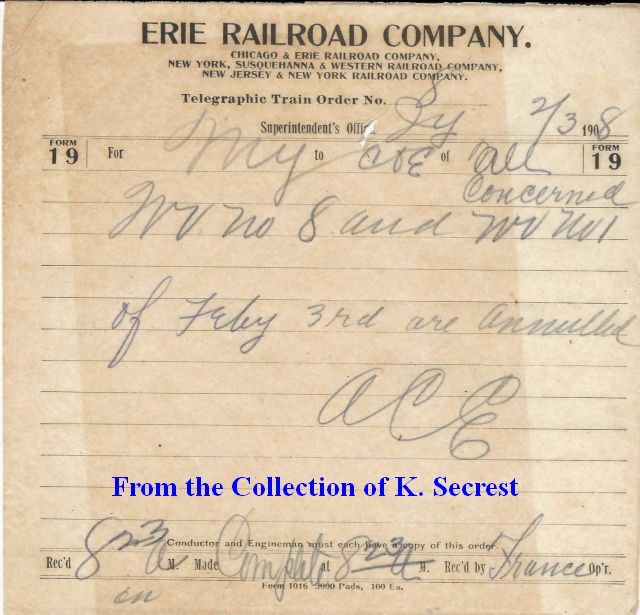 ERIE RAILROAD COMPANY.
CHICAGO & ERIE RAILROAD COMPANY,
NEW YORK, SUSQUEHANNA & WESTERN RAILROAD COMPANY,
NEW JERSEY & NEW YORK RAILROAD COMPANY.
Telegraphic Train Order No. 8
Superintendent's Office, Jy 2/3 1908
FORM 19 For My to C&E of All FORM 19
Concerned
WV No 8 and WV No 1
of Feby 3rd are annulled
ACE
From the Collection of K. Secrest
Conductor and Engineman must each have a copy of this order.
Rec'd 8 23 A M. Made Complete at 8 23 A M. Rec'd by France Op'r.
Form 1016 3000 Pads, 100 Ea.